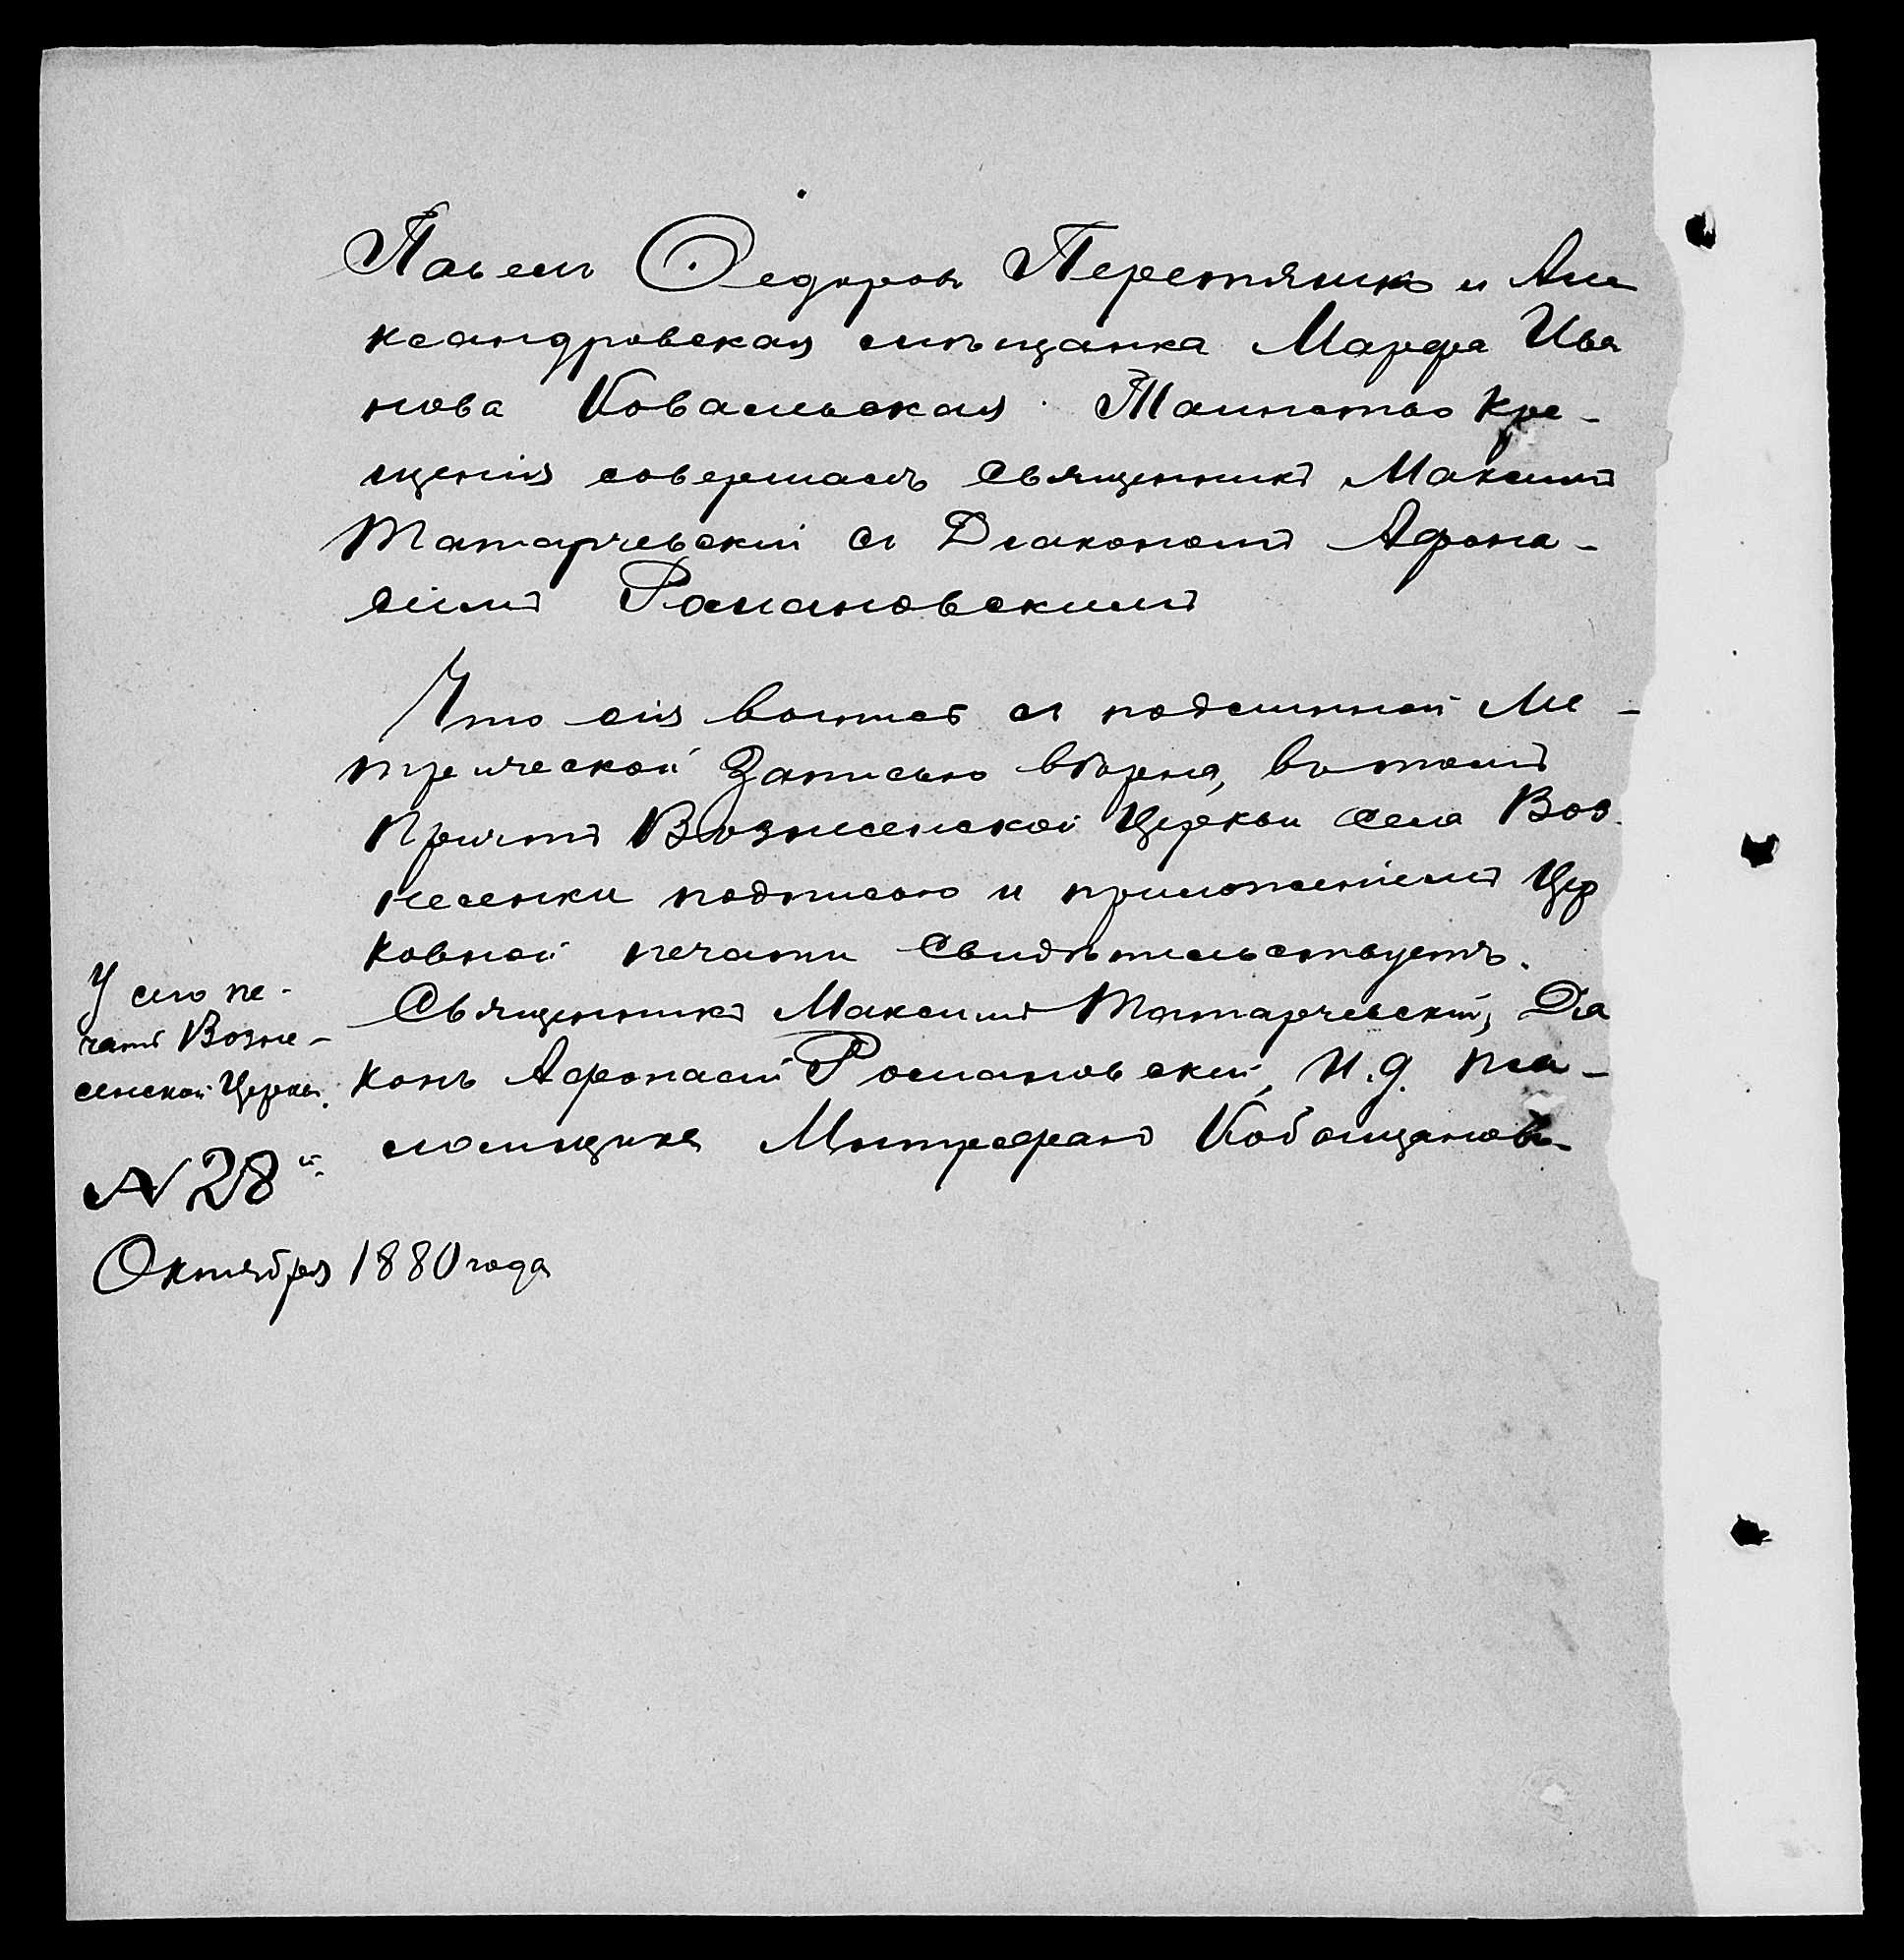 Павелъ Ѳедоровъ Перетятько и Але
ксандровская мѣщанка Марфа Ива
нова Ковальская. Таинство Кре-
щенія совершалъ Священникъ Максимъ
Татарчевскій съ Діакономъ Афона-
сіемъ Романовскимъ
Что сія выпись съ подлинной Ме-
трической Записью вѣрна, въ томъ
Причтъ Вознесенской Церкви Села Воз
несенки подписью и приложеніемъ Цер
ковной печати Свидѣтельствуетъ.
Священникъ Максимъ Татарчевскій, Діа
конъ Афонасій Романовскій, И.д. пса-
ломщика Митрофанъ Кобалщановъ
У сего пе-
чать Возне-
сенской Церкви.
N 28й
Октября 1880 года